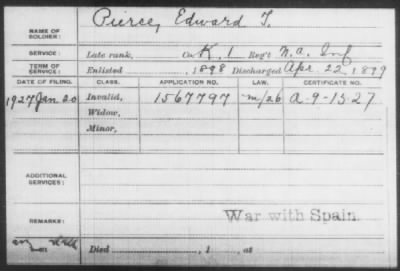 Pierce, Edward T.
NAME OF SOLDIER:
SERVICE: Late rank, Co. K, 1 Reg't N.A. Inf
TERM OF SERVICE: Enlisted , 1898 Discharged Apr. 22, 1899
DATE OF FILING. CLASS. APPLICATION NO. LAW. CERTIFICATE NO.
1927 Jan 20 Invalid, 1567797 m/26 A-9-15-27
Widow,
Minor,
ADDITIONAL SERVICES:
REMARKS: War with Spain.
Died , 1 , at